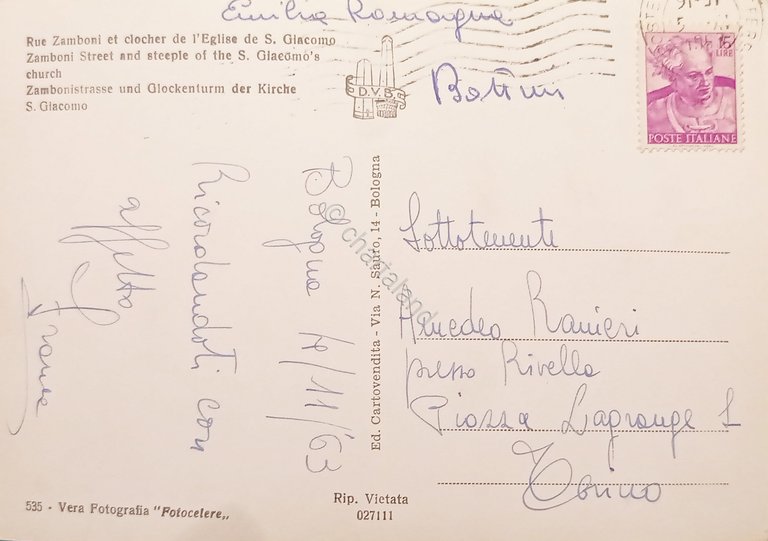 Emilia Romagna
Rue Zamboni et clocher de l'Eglise de S. Giacomo
Zamboni Street and steeple of the S. Giacomo's
church
Zambonistrasse und Glockenturm der Kirche
S. Giacomo
D.V.B.
15
LIRE
POSTE ITALIANE
Bologna 4/11/63
Ricordandoti con
affetto
Ed. Cartovendita - Via N. Sauro, 14 - Bologna
© chartaland
Sottotenente
Amedeo Ranieri
presso Rivella
Piazza Lagrange 1
Torino
535 - Vera Fotografia "Fotocelere„
Rip. Vietata
027111